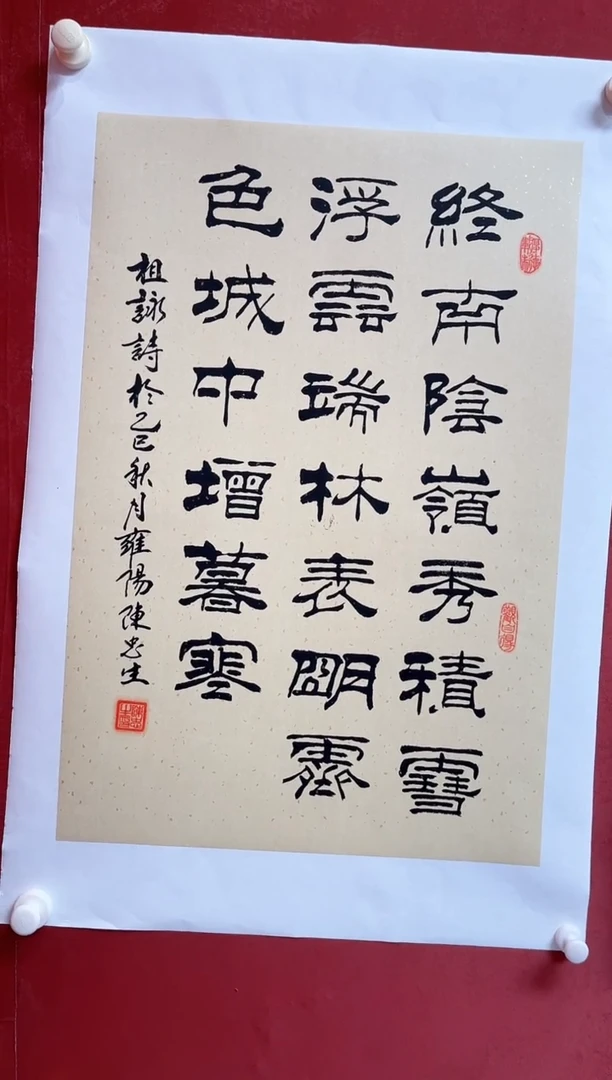 終南陰嶺秀積雪
浮雲端林表朙霽
色城中增暮寒
祖詠詩於乙巳秋月雍陽陳忠生